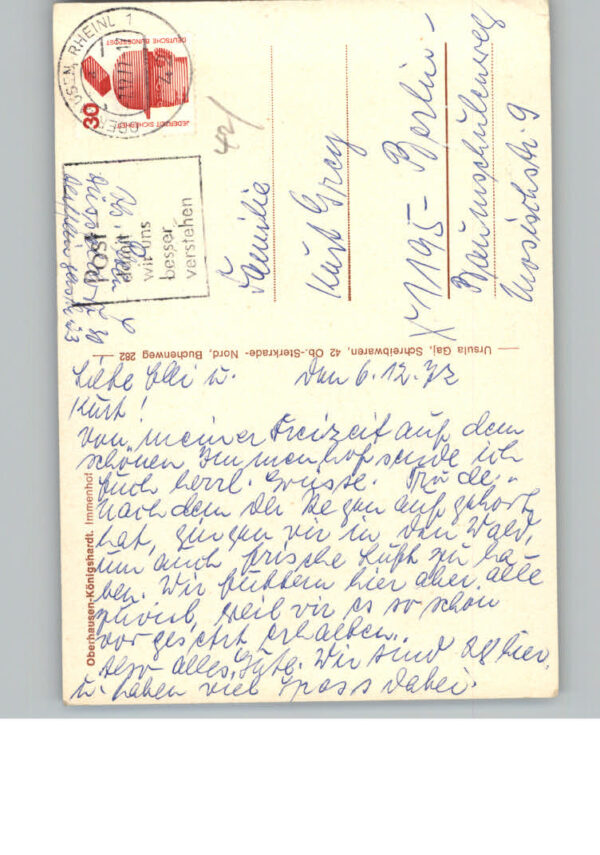 Liebe Elli u. Den 6.12.72
Kurt!
Von meiner Freizeit auf dem
schönen Immenhof sende ich
Euch herzl. Grüsse.
nach dem der Regen aufgehört
hat, gingen wir in den Wald,
um auch frische Luft zu ha-
ben. Wir futtern hier aber alle
zuviel, weil wir es so schön
vorgesetzt erhalten.
Also alles Gute. Wir sind 28 hier
u. haben viel Spass dabei.
Oberhausen-Königshardt. Immenhof
Ursula Gaj, Schreibwaren, 42 Ob.-Sterkrade- Nord, Buchenweg 282
Familie
Kurt Grey
X 1195 - Berlin -
Baumschulenweg
9
42/
OBERHAUSEN, RHEINL 1
DEUTSCHE BUNDESPOST
JEDERZEIT SICHERHEIT
30
Post
damit
wir uns
besser
verstehen